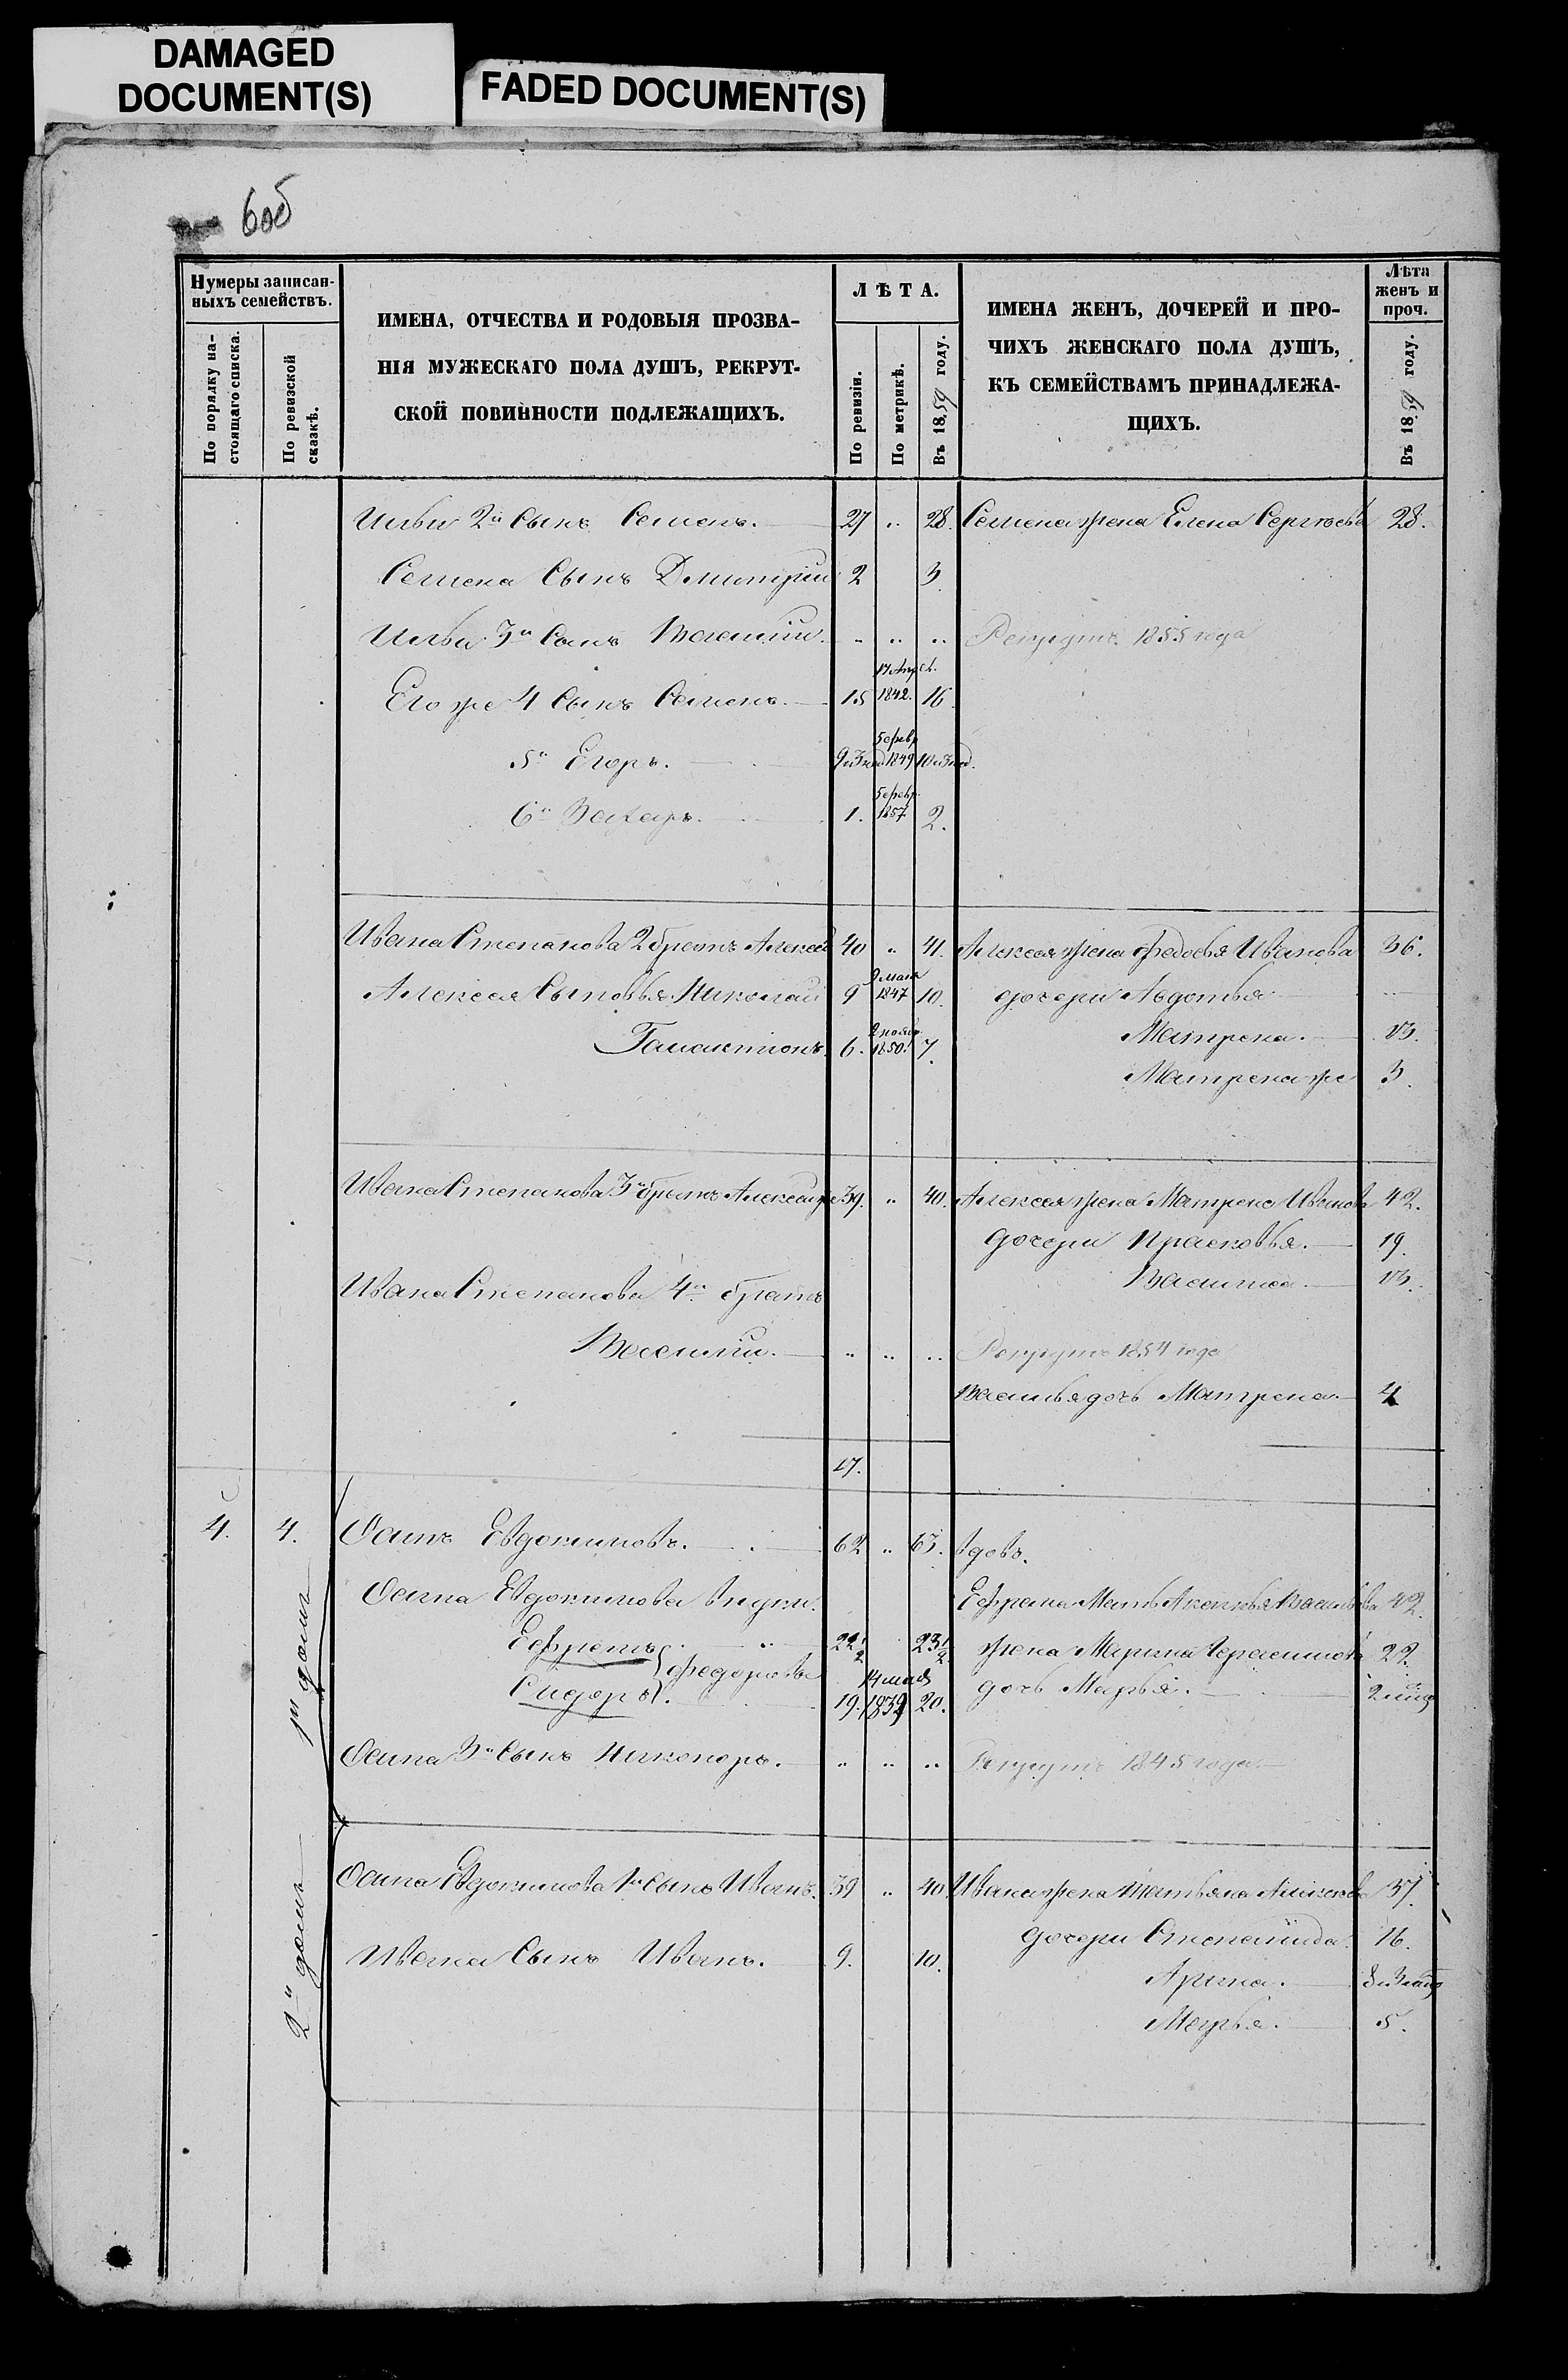 DAMAGED
DOCUMENT(S)
FADED DOCUMENT(S)
6об
Нумеры записан-
ныхъ семействъ.
По порядку на-
стоящаго списка.
По ревизской
сказкѣ.
ИМЕНА, ОТЧЕСТВА И РОДОВЫЯ ПРОЗВА-
НІЯ МУЖЕСКАГО ПОЛА ДУШЪ, РЕКРУТ-
СКОЙ ПОВИННОСТИ ПОДЛЕЖАЩИХЪ.
ЛѢТА.
По ревизіи.
По метрикѣ.
Въ 1859 году.
ИМЕНА ЖЕНЪ, ДОЧЕРЕЙ И ПРО-
ЧИХЪ ЖЕНСКАГО ПОЛА ДУШЪ,
КЪ СЕМЕЙСТВАМЪ ПРИНАДЛЕЖА-
ЩИХЪ.
Лѣта
женъ и
проч.
Въ 1859 году.
Ильи 2й Сынъ Семенъ. 27 .. 28. Семена жена Елена Сергѣева 28.
Семена Сынъ Дмитрій 2 3.
Ильи 3й Сынъ Василій. .. .. .. Рекрутъ 1855 года
17 Апрѣл.
Его же 4 Сынъ Семенъ. 15 1842. 16.
5 февр
5й Егоръ. 9 и 3 1849 10 и 3
5 февр.
6й Захаръ. 1. 1857 2.
Ивана Степанова 2 братъ Алексей 40 .. 41. Алексея жена Федосья Иванова 36.
9 мая
Алексея Сыновья Николай 9 1847 10. дочери Авдотья ..
2 ноябр.
Галактіонъ. 6. 1850. 7. Матрена. 13.
Матрена же 3.
Ивана Степанова 3й братъ Александръ 39. .. 40. Алексея жена Матрена Иванова 42.
дочери Прасковья. 19.
Василиса. 13.
Ивана Степанова 4й братъ
Василій. .. .. .. Рекрутъ 1854 года
Василья дочь Матрена. 4
17.
4. 4. Осипъ Евдокимовъ. 62 .. 63. вдовъ.
1й домъ
Осипа Евдокимова внуки. Ефрема Мать Аксинья Васильева 42.
Ефремъ 22 1/2 23 1/2 жена Марина Герасимова 22.
Федоровы
14 мая
Сидоръ. 19. 1839 20. дочь Марья. 2
Осипа 3й Сынъ Никоноръ. .. .. .. Рекрутъ 1845 года
2й домъ
Осипа Евдокимова 1й Сынъ Иванъ. 39 .. 40 Ивана жена Татьяна 37.
дочери Степанида. 16.
Ивана Сынъ Иванъ. 9. 10.
Арина. 8 и 3
Марья. 5.